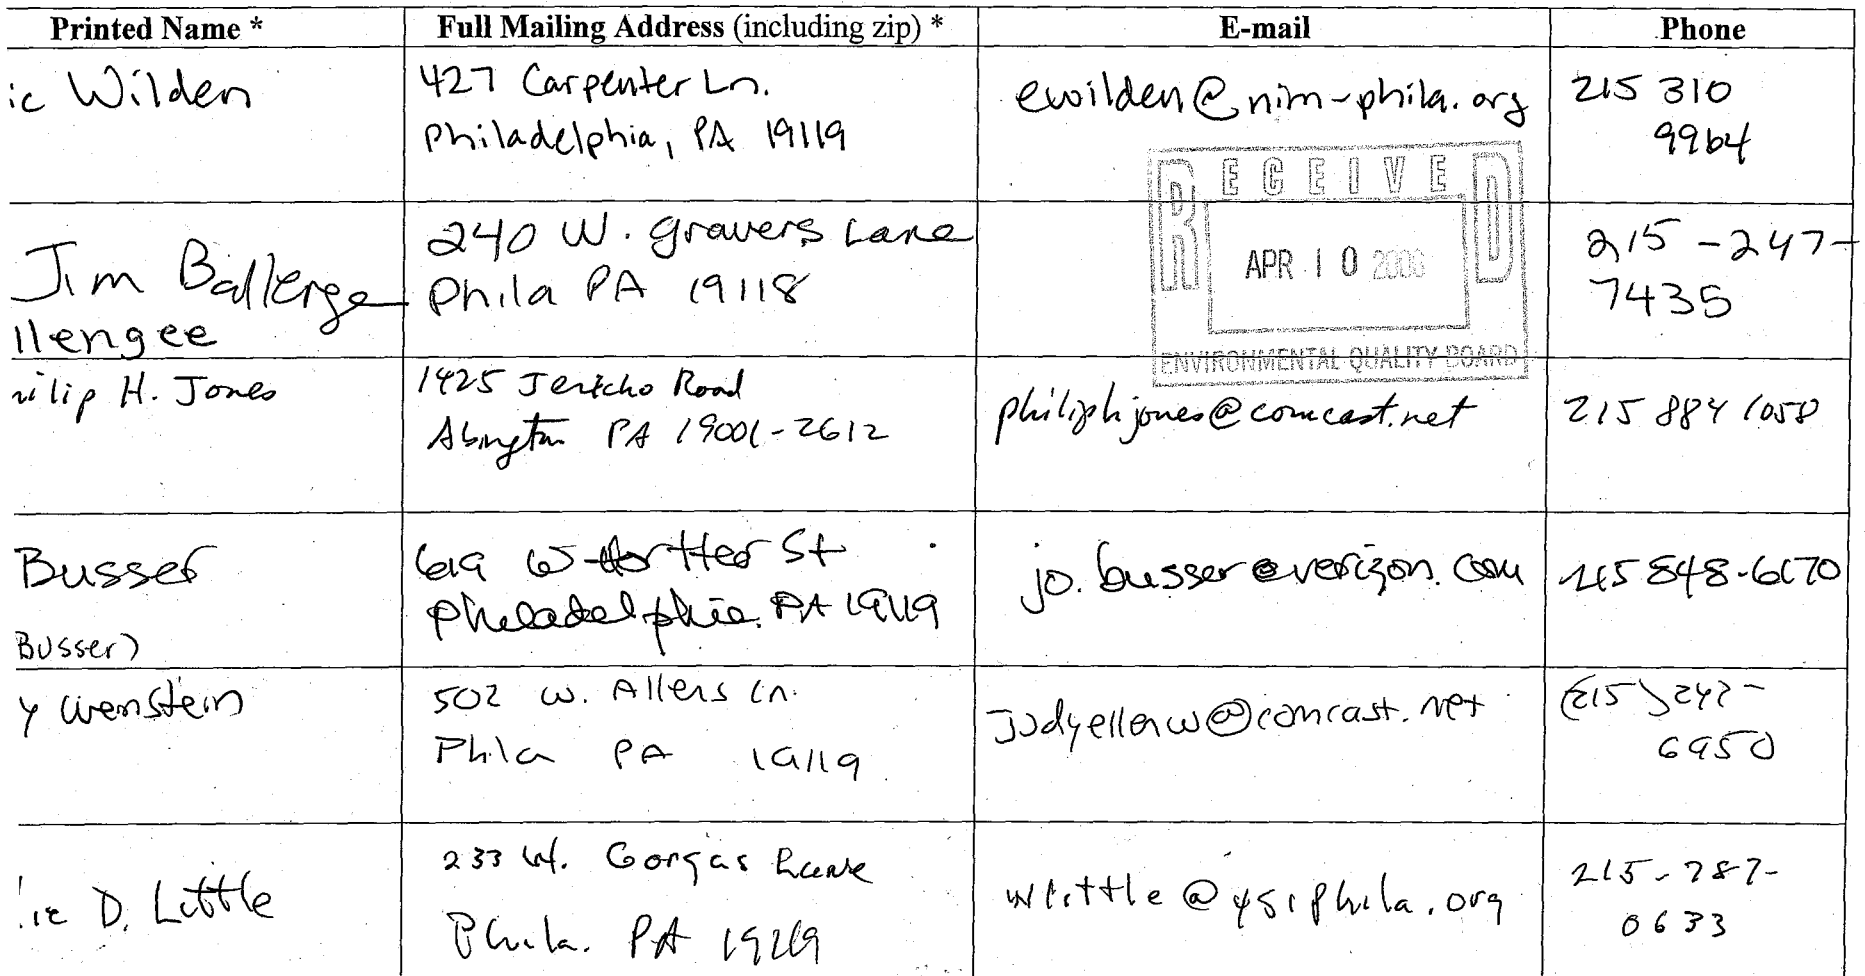 Printed Name * Full Mailing Address (including zip) * E-mail Phone
ic Wilden
427 Carpenter Ln.
Philadelphia, PA 19119
ewilden@nim-phila.org
215 310
9964
RECEIVED
APR 10 2006
ENVIRONMENTAL QUALITY BOARD
Jim Ballenge
llengee
240 W. Gravers Lane
Phila PA 19118
215-247-
7435
ilip H. Jones
1425 Jericho Road
Abington PA 19001-2612
philiphjones@comcast.net
215 884 1058
Busser
Busser)
619 W Hortter St
Philadelphia. PA 19119
jo.busser@verizon.com
215 848-6170
y Weinstein
502 W. Allens Ln.
Phila PA 19119
Judyellenw@comcast.net
(215) 242-
6950
ie D. Little
233 W. Gorgas Lane
Phila. PA 19119
wlittle@ysiphila.org
215-787-
0633